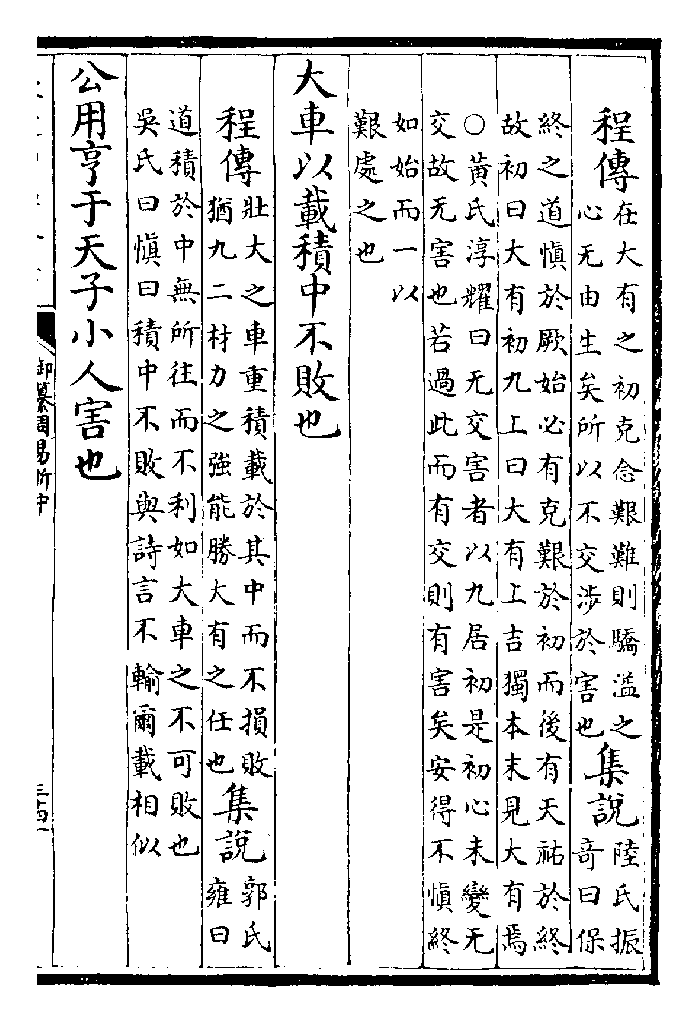 程傳在大有之初克念艱難則驕溢之
心无由生矣所以不交涉於害也集說陸氏振
奇曰保
終之道慎於厥始必有克艱於初而後有天祐於終
故初曰大有初九上曰大有上吉獨本末見大有焉
○黃氏淳耀曰无交害者以九居初是初心未變无
交故无害也若過此而有交則有害矣安得不慎終
如始而一以
艱處之也
大車以載積中不敗也
程傳壯大之車重積載於其中而不損敗
猶九二材力之強能勝大有之任也集說郭氏
雍曰
道積於中無所往而不利如大車之不可敗也
吳氏曰慎曰積中不敗與詩言不輸爾載相似
公用亨于天子小人害也
御纂周易折中